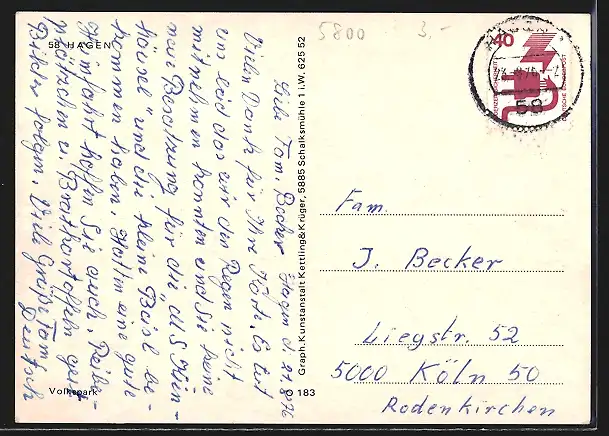 58 HAGEN
5800
3,-
Hagen d. 21.8.76
Liebe Fam. Becker
Vielen Dank für Ihre Karte. Es tut
uns leid das wir den Regen nicht
mitnehmen konnten und Sie keine
neue Besatzung für die
häusel" und die kleine be-
kommen haben. Hoffen eine gute
Heimfahrt hoffen Sie auch. Reibe-
plätzchen u. Bratkartoffeln
Bilder folgen. Viele Grüße Fam.
Deutsch
Volkspark
Graph. Kunstanstalt Kettling & Krüger, 5885 Schalksmühle 1 i.W. 625 52
O 183
40
DEUTSCHE BUNDESPOST
58
Fam.
J. Becker
Liegstr. 52
5000 Köln 50
Rodenkirchen